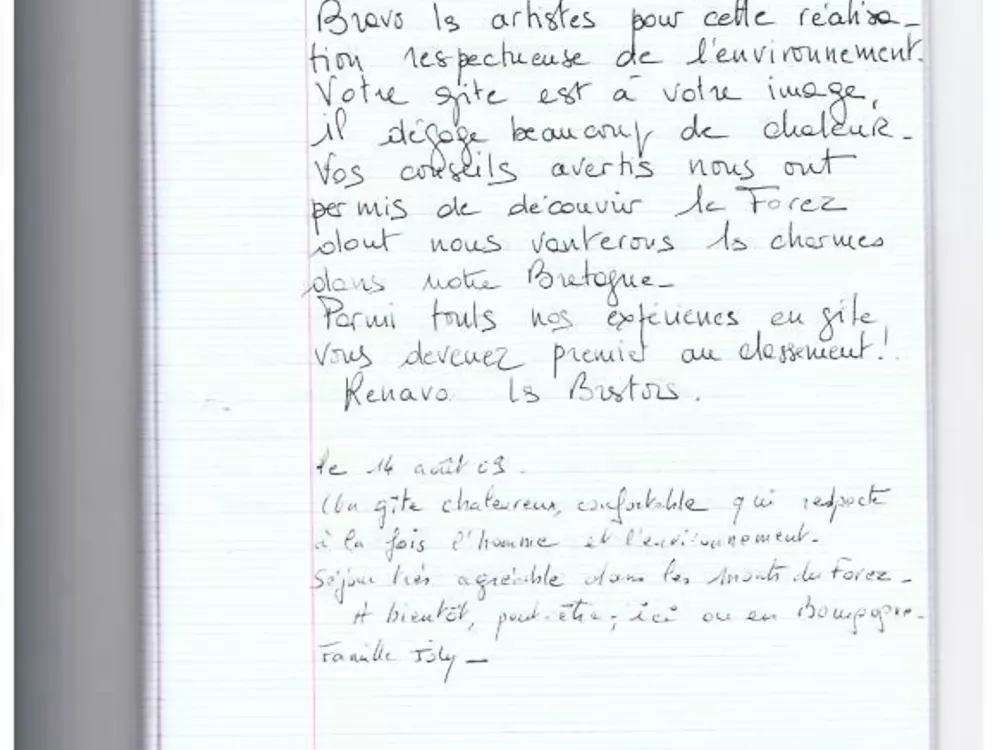 Bravo ls artistes pour cette réalisa_
tion respectueuse de l'environnement.
Votre gite est à votre image,
il dégage beaucoup de chaleur_
Vos conseils avertis nous ont
permis de découvrir le Forez
dont nous vanterons ls charmes
dans notre Bretagne_
Parmi touts nos expériences en gîte,
vous devenez premier au classement!
ls
le 14 août 09.
Un gîte chaleureux, confortable qui respecte
à la fois l'homme et l'environnement_
Séjour très agréable dans les Monts du Forez_
A bientôt, peut-être, ici ou en Bourgogne_
Famille Joly_